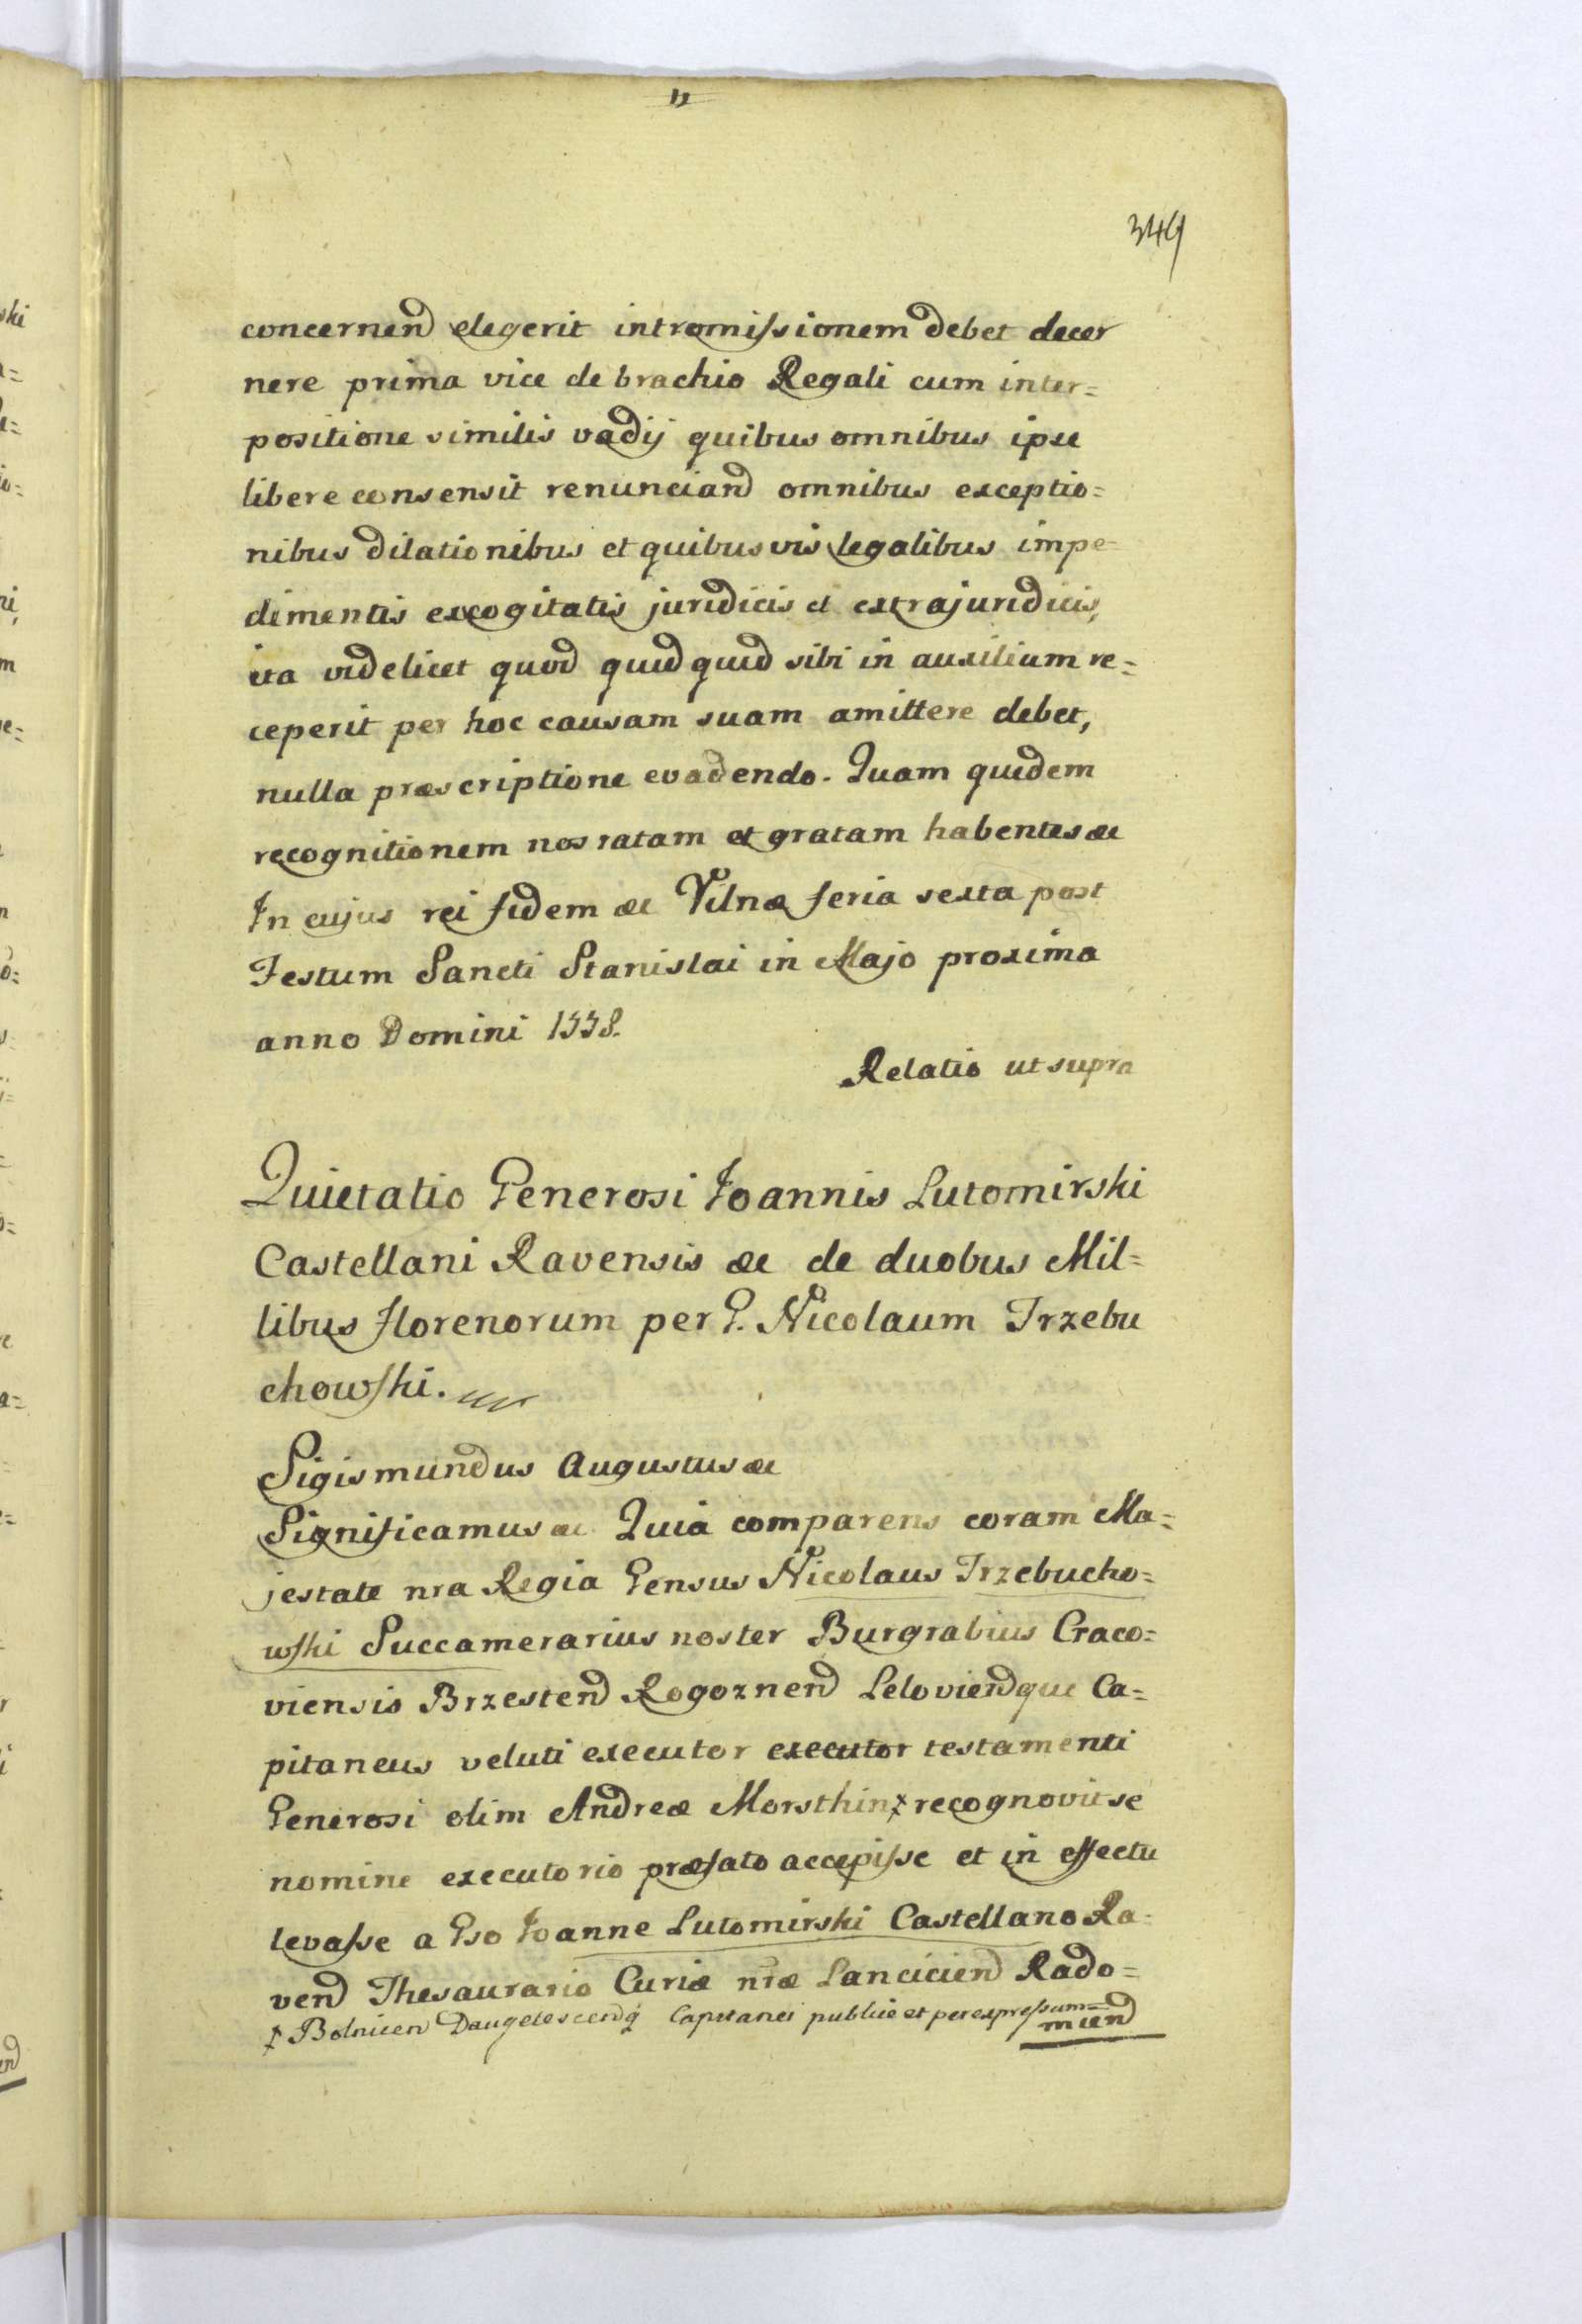 349
concernend elegerit intromissionem debet decer
nere prima vice de brachio Regali cum inter=
positione similis vadij quibus omnibus ipse
libere consensit renunciand omnibus exceptio=
nibus dilationibus et quibusvis legalibus impe=
dimentis excogitatis juridicis et extrajuridicis,
ita videlicet quod quidquid sibi in auxilium re=
ceperit per hoc causam suam amittere debet,
nulla præscriptione evadendo. Quam quidem
recognitionem nos ratam et gratam habentes &c
In cujus rei fidem &c Vilnæ feria sexta post
Festum Sancti Stanislai in Majo proxima
anno Domini 1558.
Relatio ut supra
Quietatio Generosi Joannis Lutomirski
Castellani Ravensis &c de duobus Mil=
libus Florenorum per G. Nicolaum Trzebu
chowski.
Sigismundus Augustus &c
Significamus &c Quia comparens coram Ma=
jestate nra Regia Gensus Nicolaus Trzebucho=
wski Succamerarius noster Burgrabius Craco=
viensis Brzestend Rogoznend Leloviendque Ca=
pitaneus veluti executor executor testamenti
Generosi olim Andreæ Morsthin x recognovit se
nomine executorio præfato accepisse et in effectu
levasse a Gso Joanne Lutomirski Castellano Ra=
vend Thesaurario Curiæ nræ Lanciciend Rado=
miend
x Bolnicen Daugeliscendq Capitanei publice et per expressum=